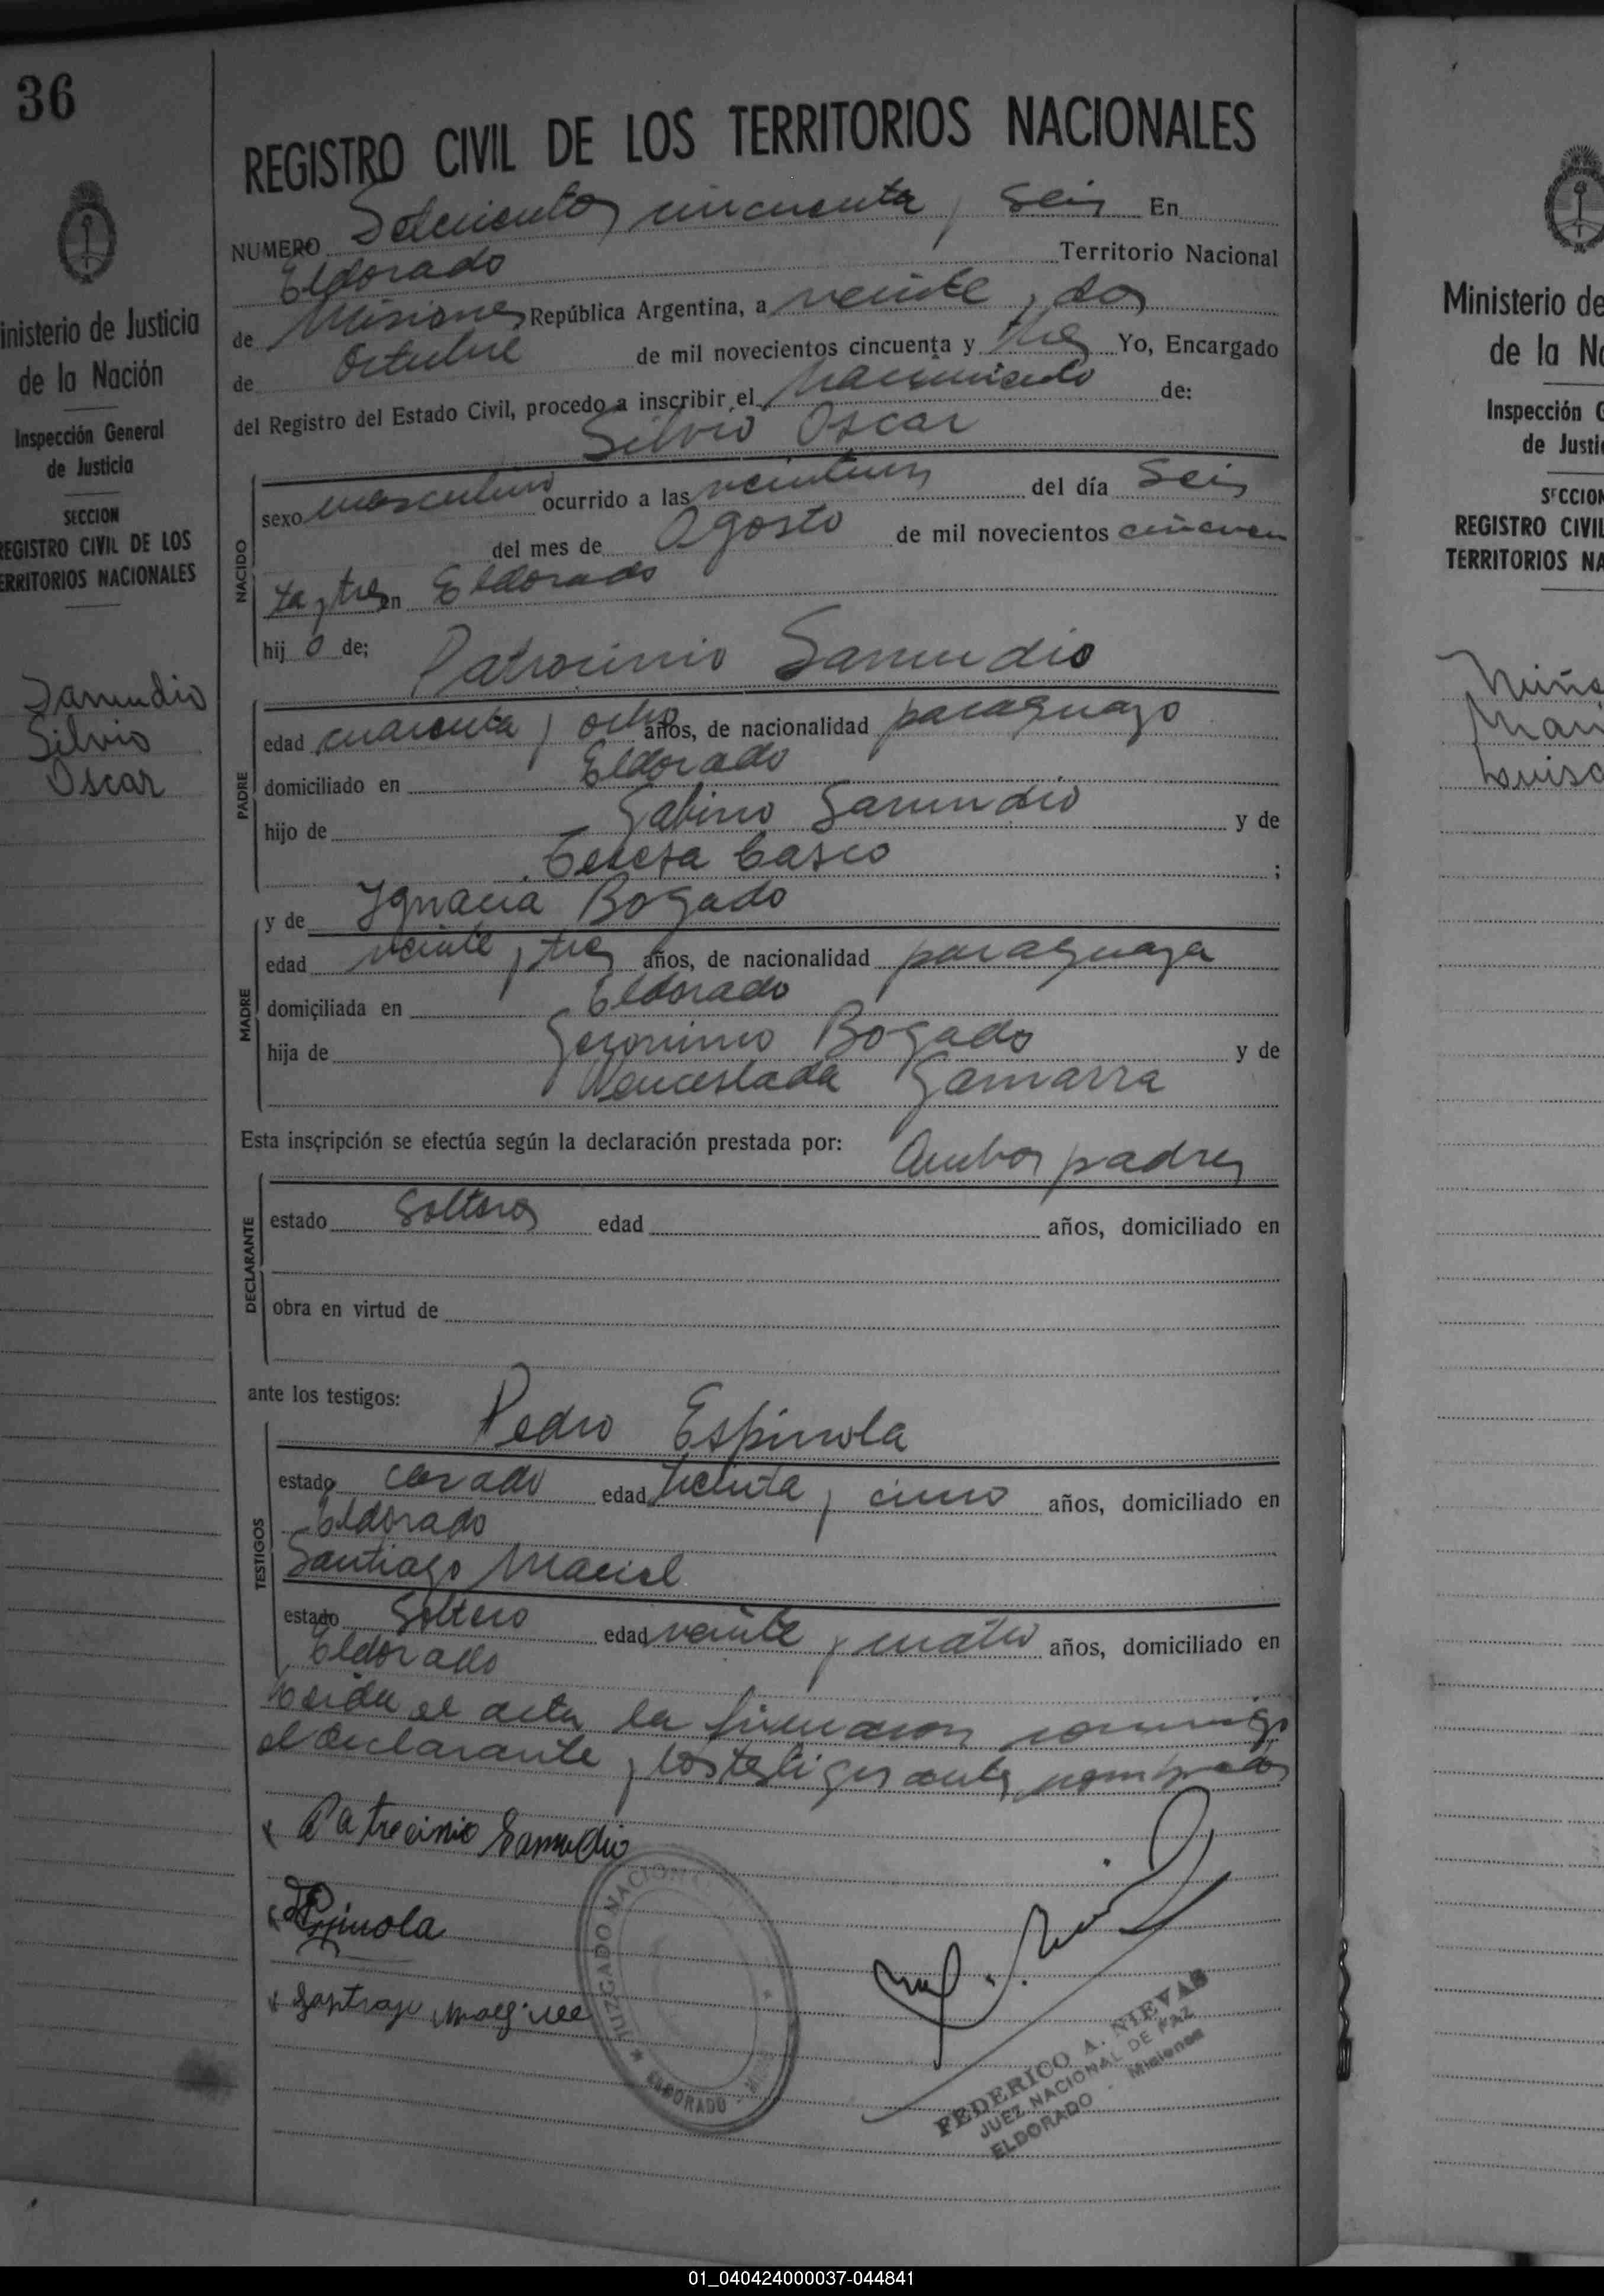 36
REGISTRO CIVIL DE LOS TERRITORIOS NACIONALES
NUMERO Setecientos cincuenta y seis En
Eldorado Territorio Nacional
de Misiones República Argentina, a veinte y dos
de Octubre de mil novecientos cincuenta y tres Yo, Encargado
del Registro del Estado Civil, procedo a inscribir el Nacimiento de:
Silvio Oscar
NACIDO
sexo masculino ocurrido a las veintiun del día Seis
del mes de Agosto de mil novecientos cincuen
ta y tres en Eldorado
hij o de;
Patrocinio Samudio
PADRE
edad cuarenta y ocho años, de nacionalidad paraguayo
domiciliado en Eldorado
hijo de Gabino Samudio y de
Teresa Casco ;
y de Ignacia Bogado
MADRE
edad veinte y tres años, de nacionalidad paraguaya
domiciliada en Eldorado
hija de Geronimo Bogado y de
Wenceslada Gamarra
Esta inscripción se efectúa según la declaración prestada por: Ambos padres
DECLARANTE
estado Solteros edad años, domiciliado en
obra en virtud de
ante los testigos:
Pedro Espinola
TESTIGOS
estado casado edad treinta y cinco años, domiciliado en
Eldorado
Santiago Maciel
estado Soltero edad veinte y cuatro años, domiciliado en
Eldorado
Leida el acta la firmaron conmigo
el declarante y los testigos antes nombrados
Patrocinio Samudio
Espinola
JUZGADO NACIONAL
ELDORADO
FEDERICO A. NIEVAS
JUEZ NACIONAL DE PAZ
ELDORADO - Misiones
inisterio de Justicia
de la Nación
Inspección General
de Justicia
SECCION
REGISTRO CIVIL DE LOS
ERRITORIOS NACIONALES
Samudio
Silvio
Oscar
Ministerio de
de la Na
Inspección G
de Justi
SECCION
REGISTRO CIVIL
TERRITORIOS NA
01_040424000037-044841